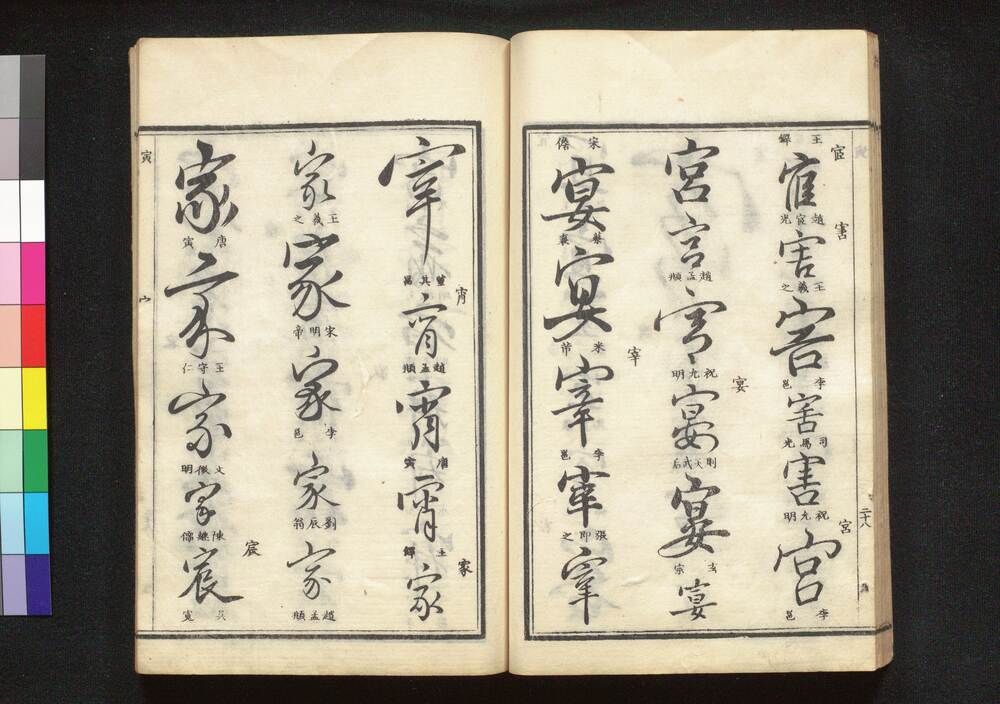 宦 害 宮
宦 趙宦光 害 王羲之 害 李邕 害 司馬光 害 祝允明 宮 李邕
王鐸
宴
宮 宮 趙孟頫 宮 祝允明 宴 則天武后 宴 玄宗 宴
宰
宋儋 宴 蔡襄 宴 米芾 宰 李邕 宰 張即之 宰
二十八
宵 家
宰 董其昌 宵 趙孟頫 宵 唐寅 宵 王鐸 家
家 王羲之 家 宋明帝 家 李邕 家 劉辰翁 家 趙孟頫
宸
家 唐寅 家 王守仁 家 文徵明 家 陳繼儒 宸 吳寬
寅
宀